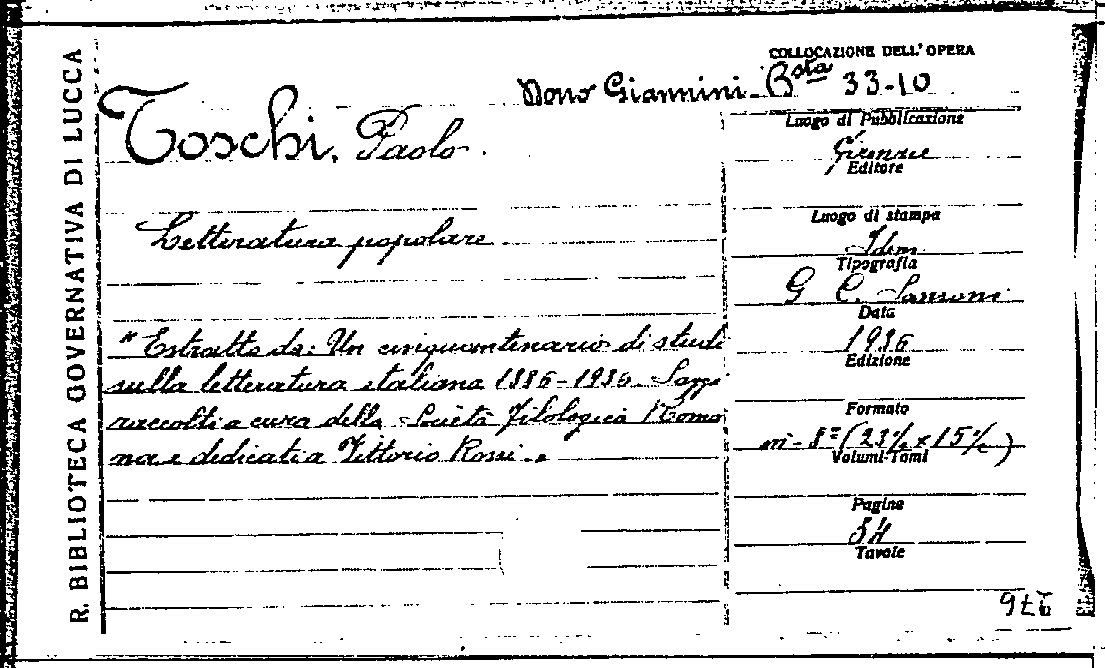 R. BIBLIOTECA GOVERNATIVA DI LUCCA
COLLOCAZIONE DELL'OPERA
Dono Giannini - Bsta 33-10
Toschi, Paolo.
Letteratura popolare
"Estratto da: Un cinquantenario di studi
sulla letteratura italiana 1886-1936. Saggi
raccolti a cura della Società Filologica Roma
na e dedicati a Vittorio Rossi."
Luogo di Pubblicazione
Firenze
Editore
Luogo di stampa
Idem
Tipografia
G C. Sansoni
Data
1936
Edizione
Formato
in-8º (23½ x 15½)
Volumi-Tomi
Pagine
Tavole